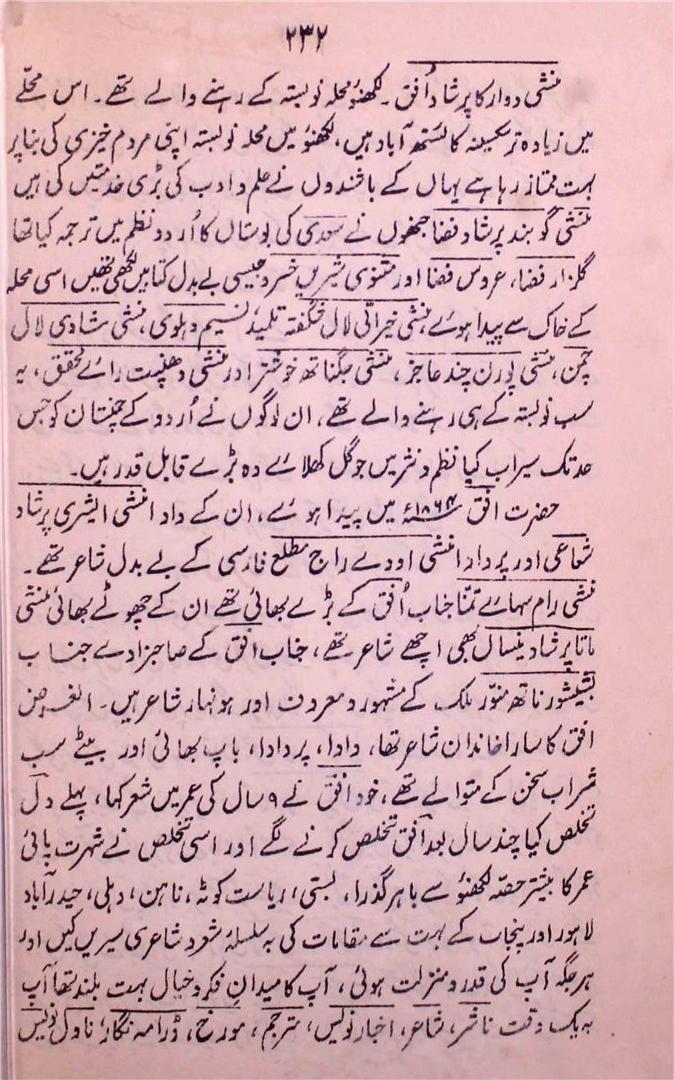 ۲۳۲
منشی دوارکا پرشاد اُفق۔ لکھنؤ محلہ نوبستہ کے رہنے والے تھے۔ اس محلّے
میں زیادہ تر سکسینہ کائستھ آباد ہیں، لکھنؤ میں محلہ نوبستہ اپنی مردم خیزی کی بنا پر
بہت ممتاز رہا ہے یہاں کے باشندوں نے علم و ادب کی بڑی خدمتیں کی ہیں
منشی گوبند پرشاد فضا جنھوں نے سعدی کی بوستاں کا اُردو نظم میں ترجمہ کیا تھا
گلزار فضا، عروس فضا اور مثنوی شیریں خسرو جیسی بے بدل کتابیں لکھی تھیں اسی محلہ
کے خاک سے پیدا ہوئے، منشی خیراتی لال شگفتہ تلمیذ نسیم دہلوی، منشی شادی لال
چمن، منشی پورن چند عاجز، منشی جگناتھ خوشتر اور منشی دھنپت رائے محقق، یہ
سب نوبستہ کے ہی رہنے والے تھے، ان لوگوں نے اُردو کے چمنستان کو جس
حد تک سیراب کیا نظم و نثر میں جو گل کھلائے وہ بڑے قابل قدر ہیں۔
حضرت افق ۱۸۶۴ء میں پیدا ہوئے، ان کے دادا منشی ایشری پرشاد
شعاعی اور پر دادا منشی اودے راج مطلع فارسی کے بے بدل شاعر تھے۔
منشی رام سہائے تمنا جناب اُفق کے بڑے بھائی تھے ان کے چھوٹے بھائی منشی
ماتا پرشاد نیساں بھی اچھے شاعر تھے، جناب افق کے صاحبزادے جناب
بشیشور ناتھ منوّر ملک کے مشہور و معروف اور ہونہار شاعر ہیں۔ الغرض
افق کا سارا خاندان شاعر تھا، دادا، پر دادا، باپ بھائی اور بیٹے سب
شراب سخن کے متوالے تھے، خود افق نے ۹ سال کی عمر میں شعر کہا، پہلے دل
تخلص کیا چند سال بعد اُفق تخلص کرنے لگے اور اسی تخلص نے شہرت پائی
عمر کا بیشتر حصّہ لکھنؤ سے باہر گذرا، بستی، ریاست کوٹہ، ناہن، دہلی، حیدرآباد
لاہور اور پنجاب کے بہت سے مقامات کی بہ سلسلۂ شعر و شاعری سیریں کیں اور
ہر جگہ آپ کی قدر و منزلت ہوئی، آپ کا میدان فکر و خیال بہت بلند تھا آپ
بہ یک وقت ناشر، شاعر، اخبار نویس، مترجم، مورخ، ڈرامہ نگار، ناول نویس